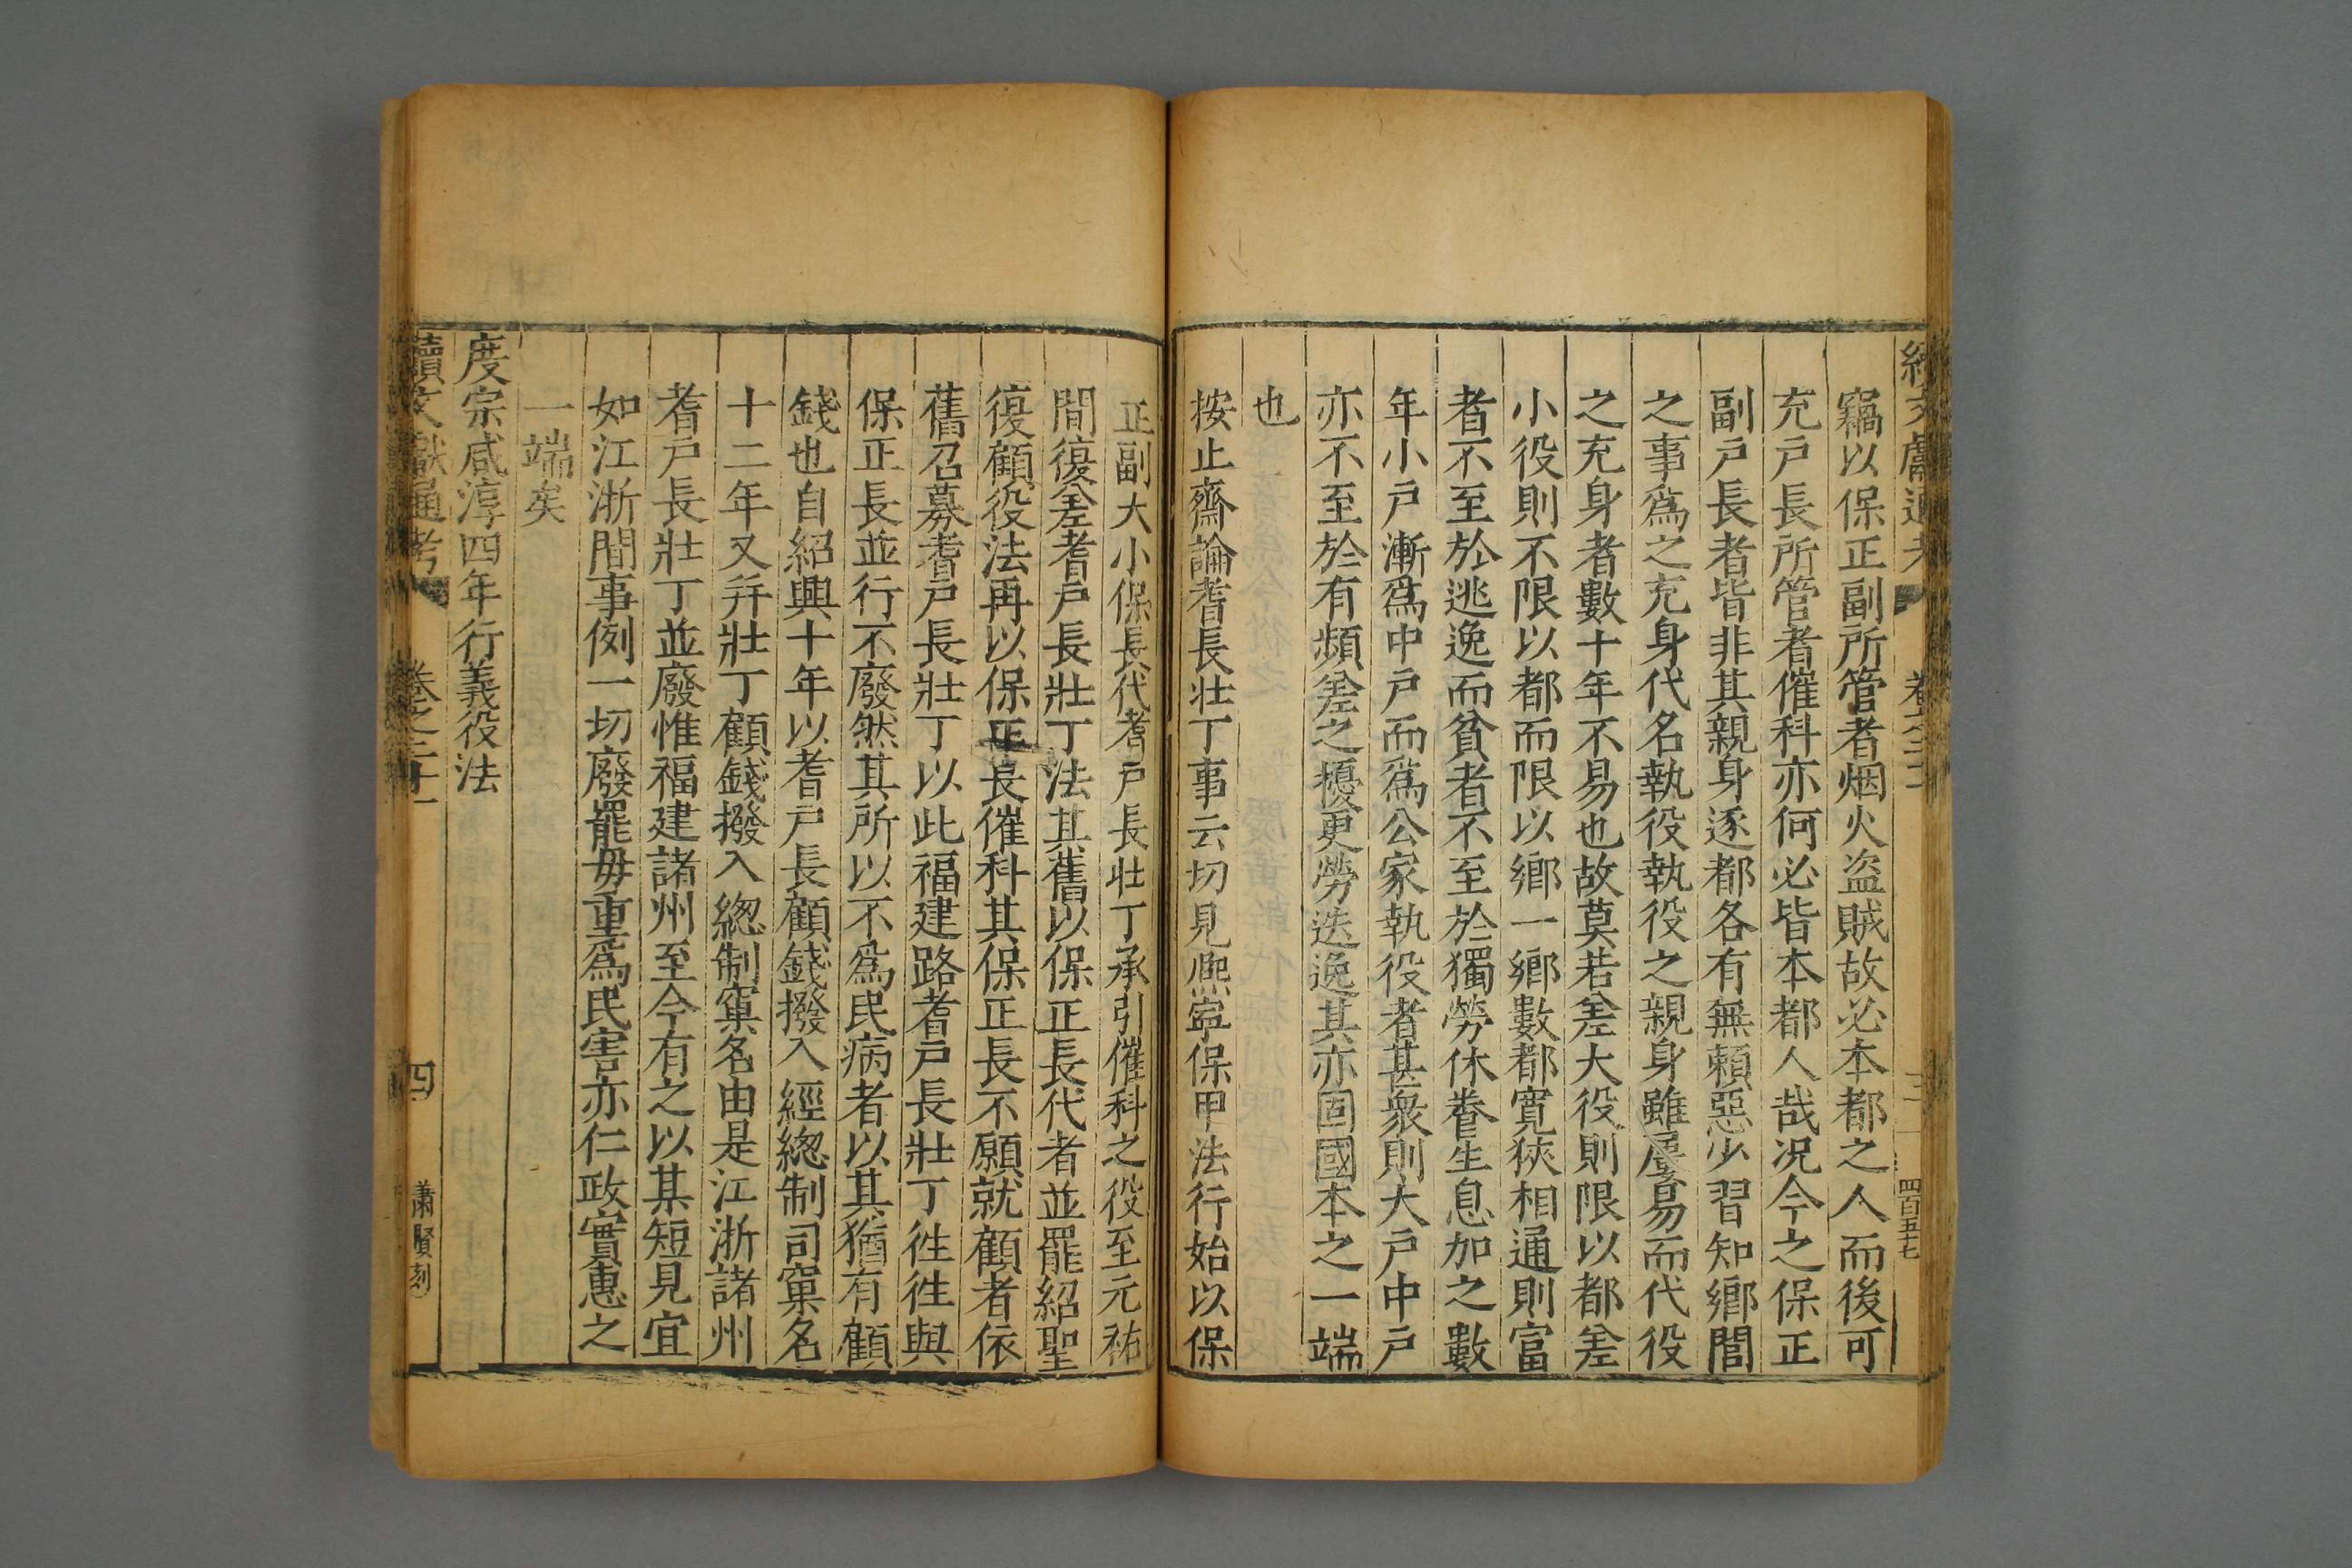 續文獻通考
卷之二十一
三
四百五十七
竊以保正副所管者烟火盜賊故必本都之人而後可
充戶長所管者催科亦何必皆本都人哉况今之保正
副戶長者皆非其親身逐都各有無賴惡少習知鄉閭
之事爲之充身代名執役執役之親身雖屢易而代役
之充身者數十年不易也故莫若差大役則限以都差
小役則不限以都而限以鄉一鄉數都寬狹相通則富
者不至於逃逸而貧者不至於獨勞休養生息加之數
年小戶漸爲中戶而爲公家執役者甚衆則大戶中戶
亦不至於有頻差之擾更勞迭逸其亦固國本之一端
也
按止齋論耆長壯丁事云切見熈寧保甲法行始以保
正副大小保長代耆戶長壯丁承引催科之役至元祐
間復差耆戶長壯丁法其舊以保正長代者並罷紹聖
復顧役法再以保正長催科其保正長不願就顧者依
舊召募耆戶長壯丁以此福建路耆戶長壯丁徃徃與
保正長並行不廢然其所以不爲民病者以其猶有顧
錢也自紹興十年以耆戶長顧錢撥入經總制司窠名
十二年又幷壯丁顧錢撥入總制窠名由是江浙諸州
耆戶長壯丁並廢惟福建諸州至今有之以某短見宜
如江浙間事例一切廢罷毋重爲民害亦仁政實惠之
一端矣
度宗咸淳四年行義役法
續文獻通考
卷之二十一
四
蕭賢刻